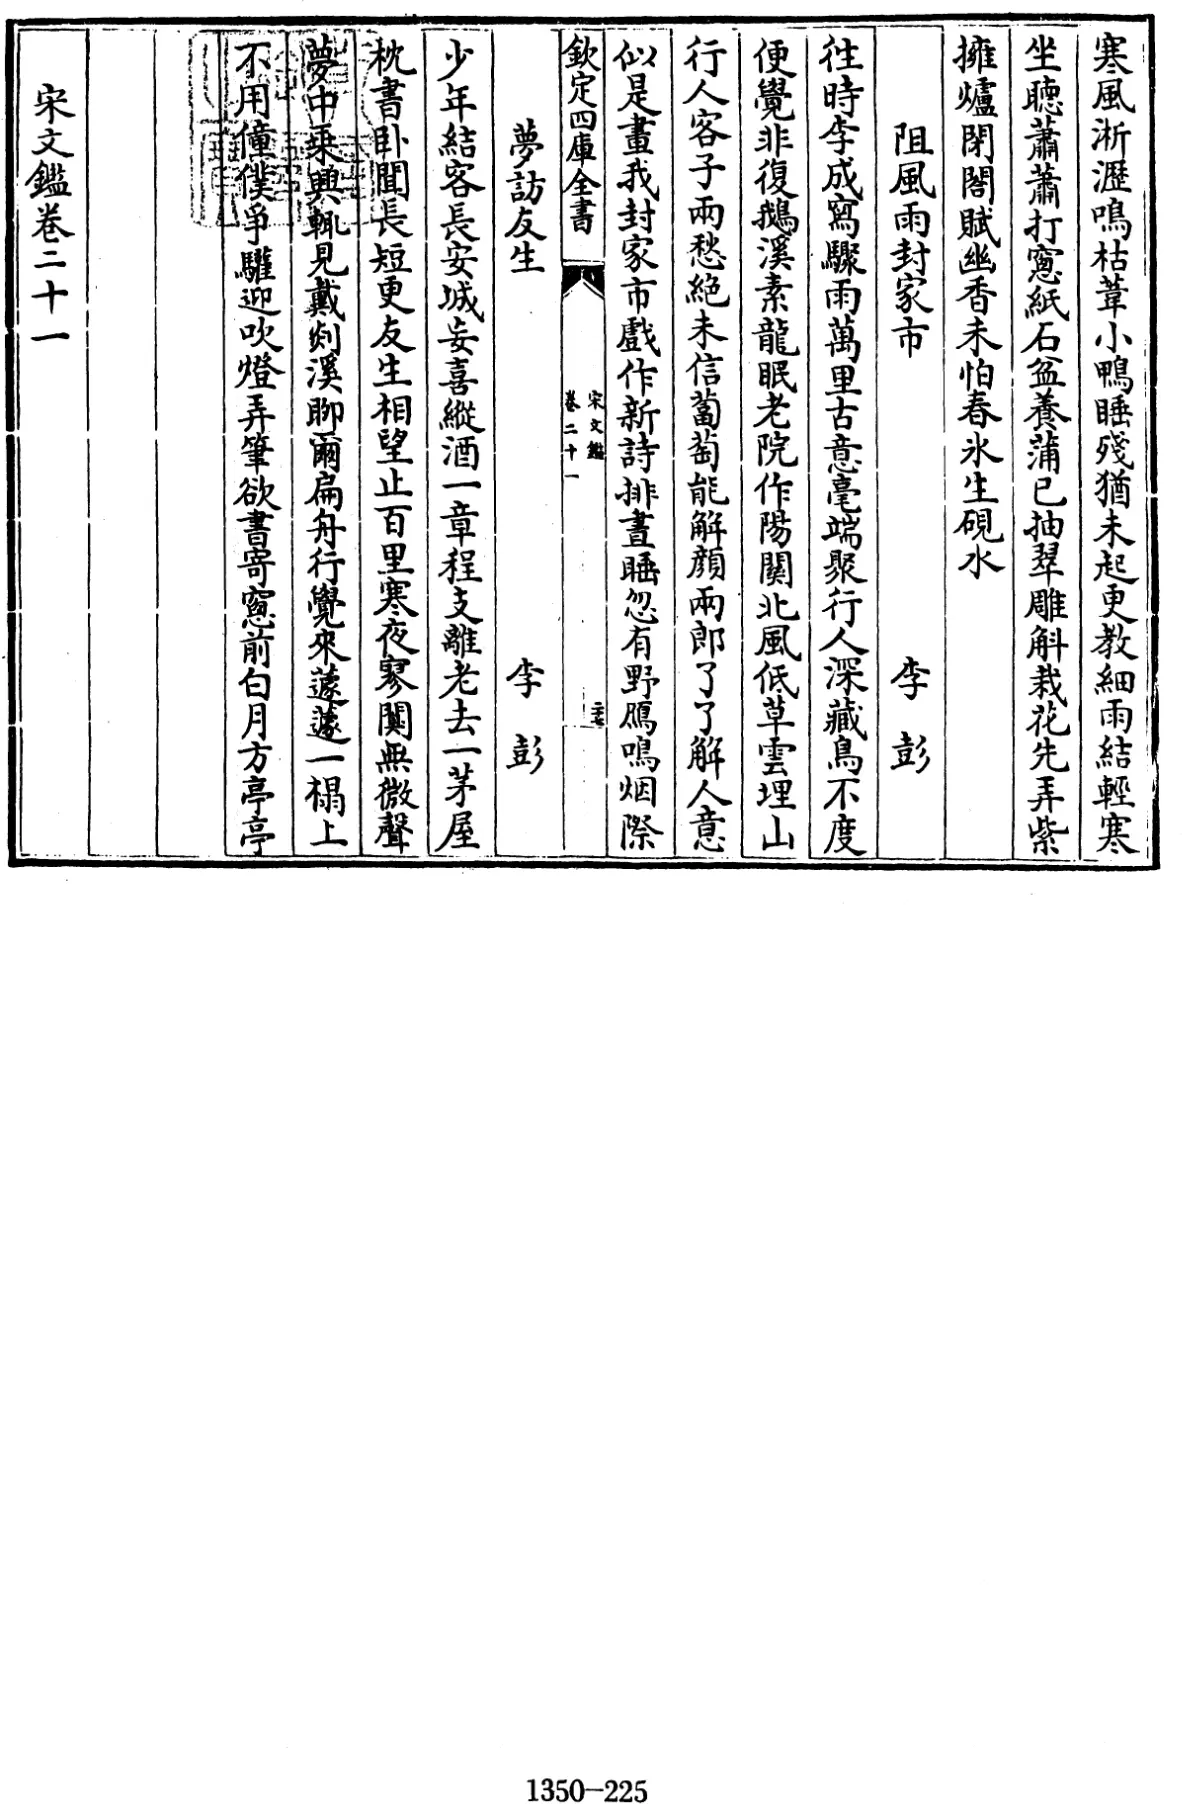 寒風淅瀝鳴枯葦小鴨睡殘猶未起更教細雨結輕寒
坐聽蕭蕭打窻紙石盆養蒲已抽翠雕斛栽花先弄紫
擁爐閉閤賦幽香未怕春氷生硯水
阻風雨封家市 李彭
往時李成寫驟雨萬里古意毫端聚行人深藏鳥不度
便覺非復鵝溪素龍眠老院作陽關北風低草雲埋山
行人客子兩愁絶未信蔔萄能解顔兩郎了了解人意
似是畫我封家市戲作新詩排晝睡忽有野鴈鳴烟際
欽定四庫全書
宋文鑑
卷二十一
二十七
夢訪友生 李彭
少年結客長安城妄喜縱酒一章程支離老去一茅屋
枕書卧聞長短更友生相望止百里寒夜寥闃無微聲
夢中乗興輒見戴剡溪聊爾扁舟行覺來蘧蘧一榻上
不用僮僕爭驩迎吹燈弄筆欲書寄窻前白月方亭亭
宋文鑑卷二十一
1350-225